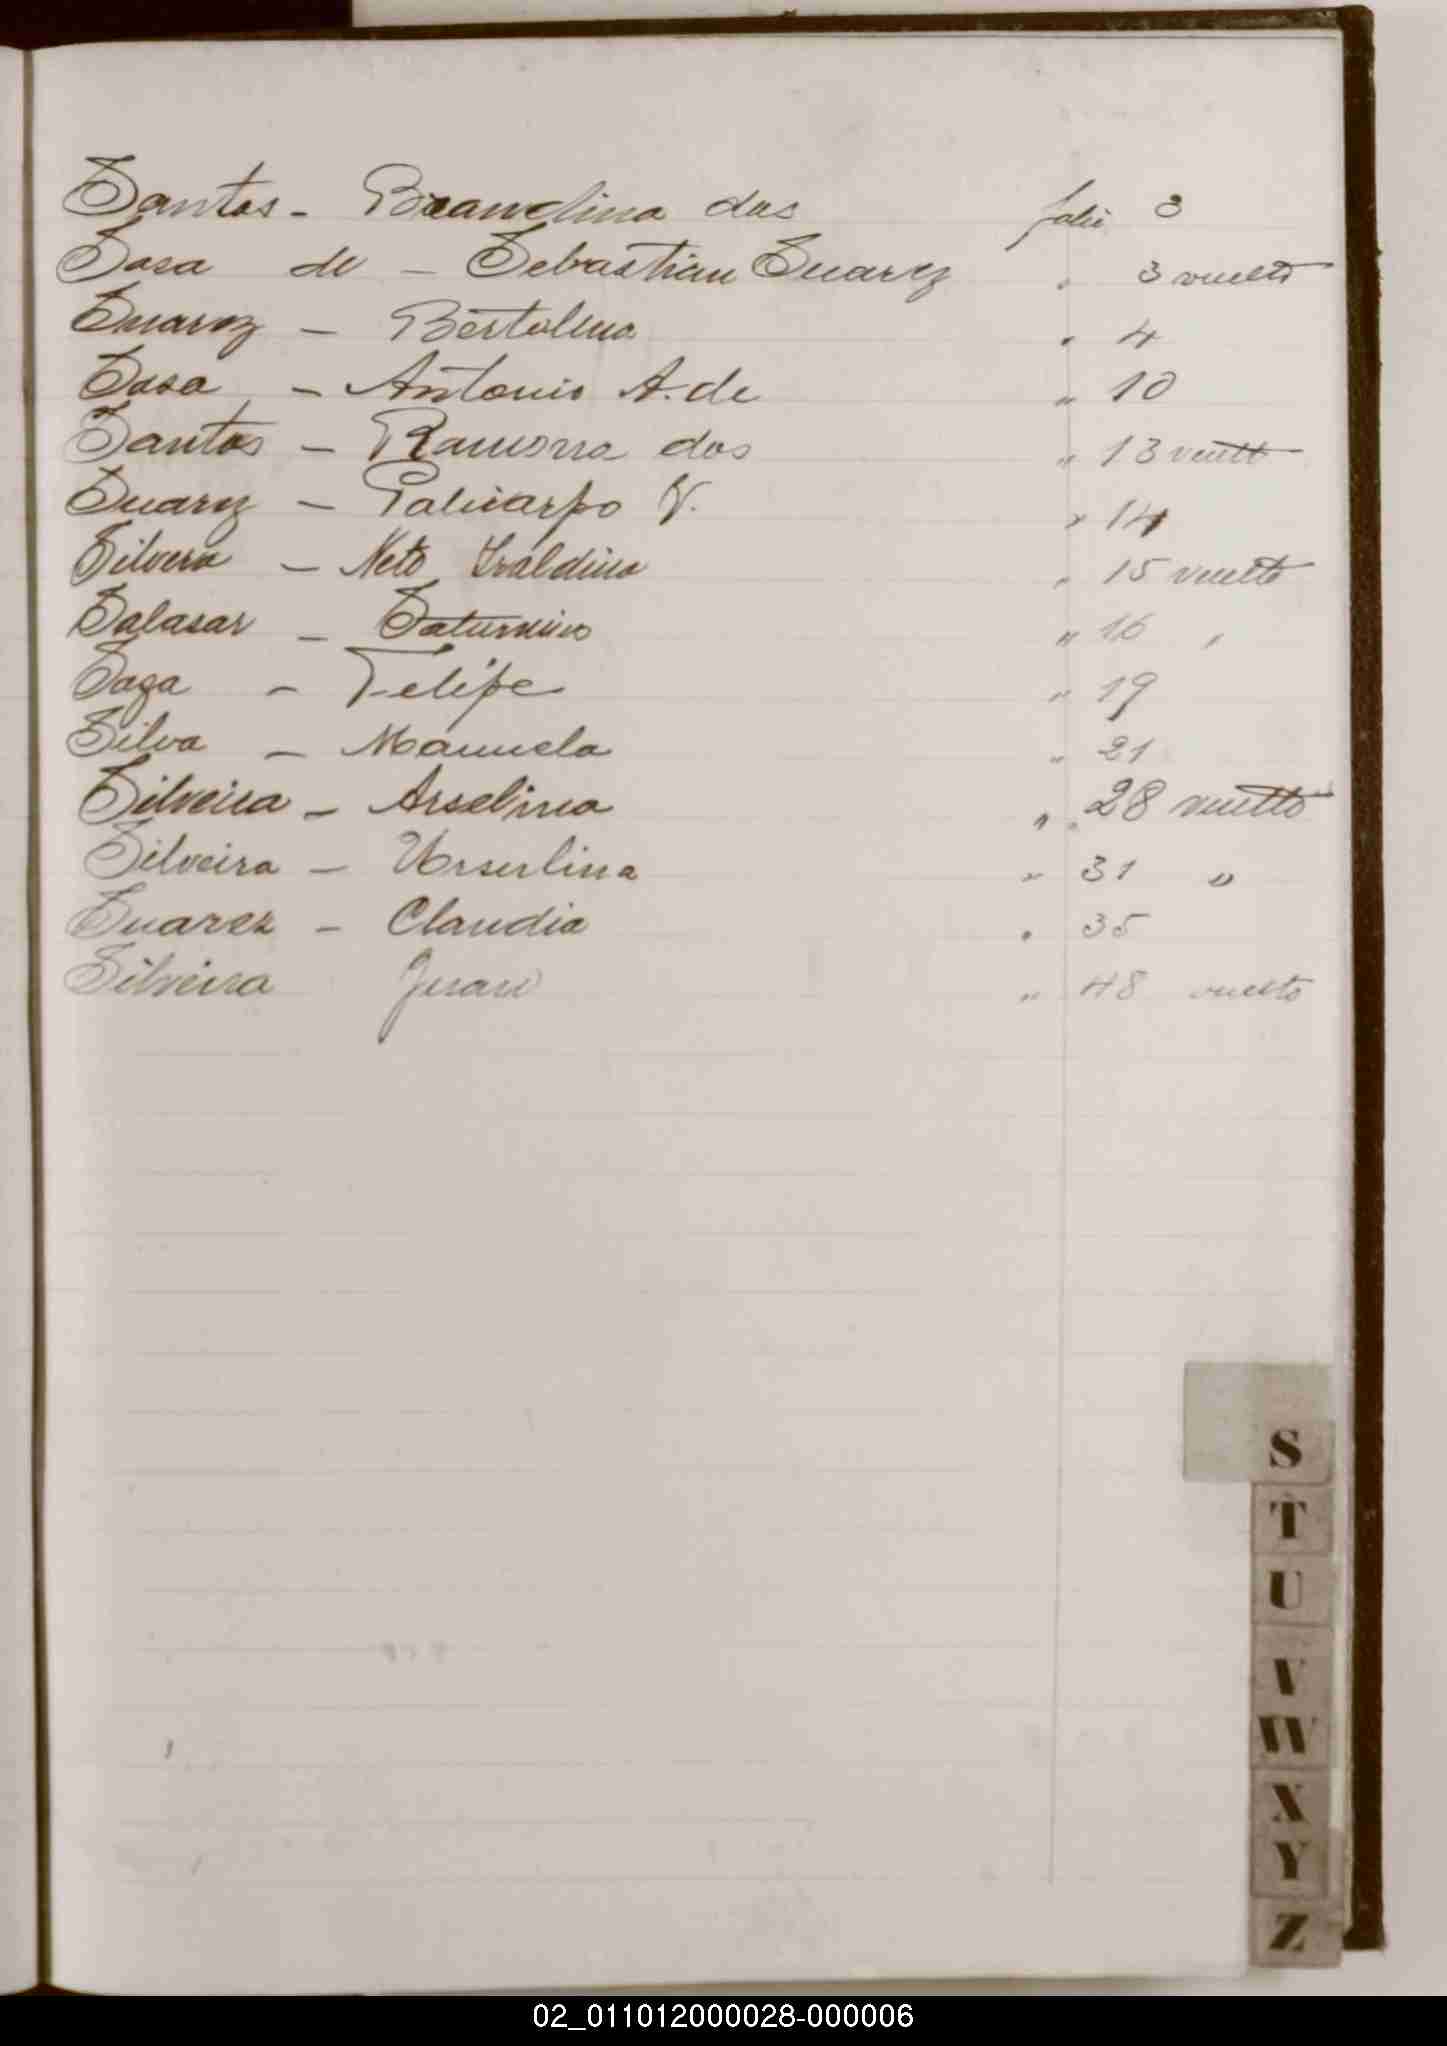 Santos - Brandina dos folio 3
Sosa de - Sebastian Suarez " 3 vuelto
Suarez - Bertolina " 4
Sosa - Antonio A. de " 10
Santos - Ramona dos " 13 vuelto
Suarez - Policarpo V. " 14
Silvera - Neto Iraldina " 15 vuelto
Salasar - Saturnino " 16 "
Saga - Felipe " 19
Silva - Manuela " 21
Silveira - Arselina " 28 vuelto
Silveira - Urserlina " 31 "
Suarez - Claudia " 35
Silveira " 48 vuelto
S
T
U
V
W
X
Y
Z
02_011012000028-000006